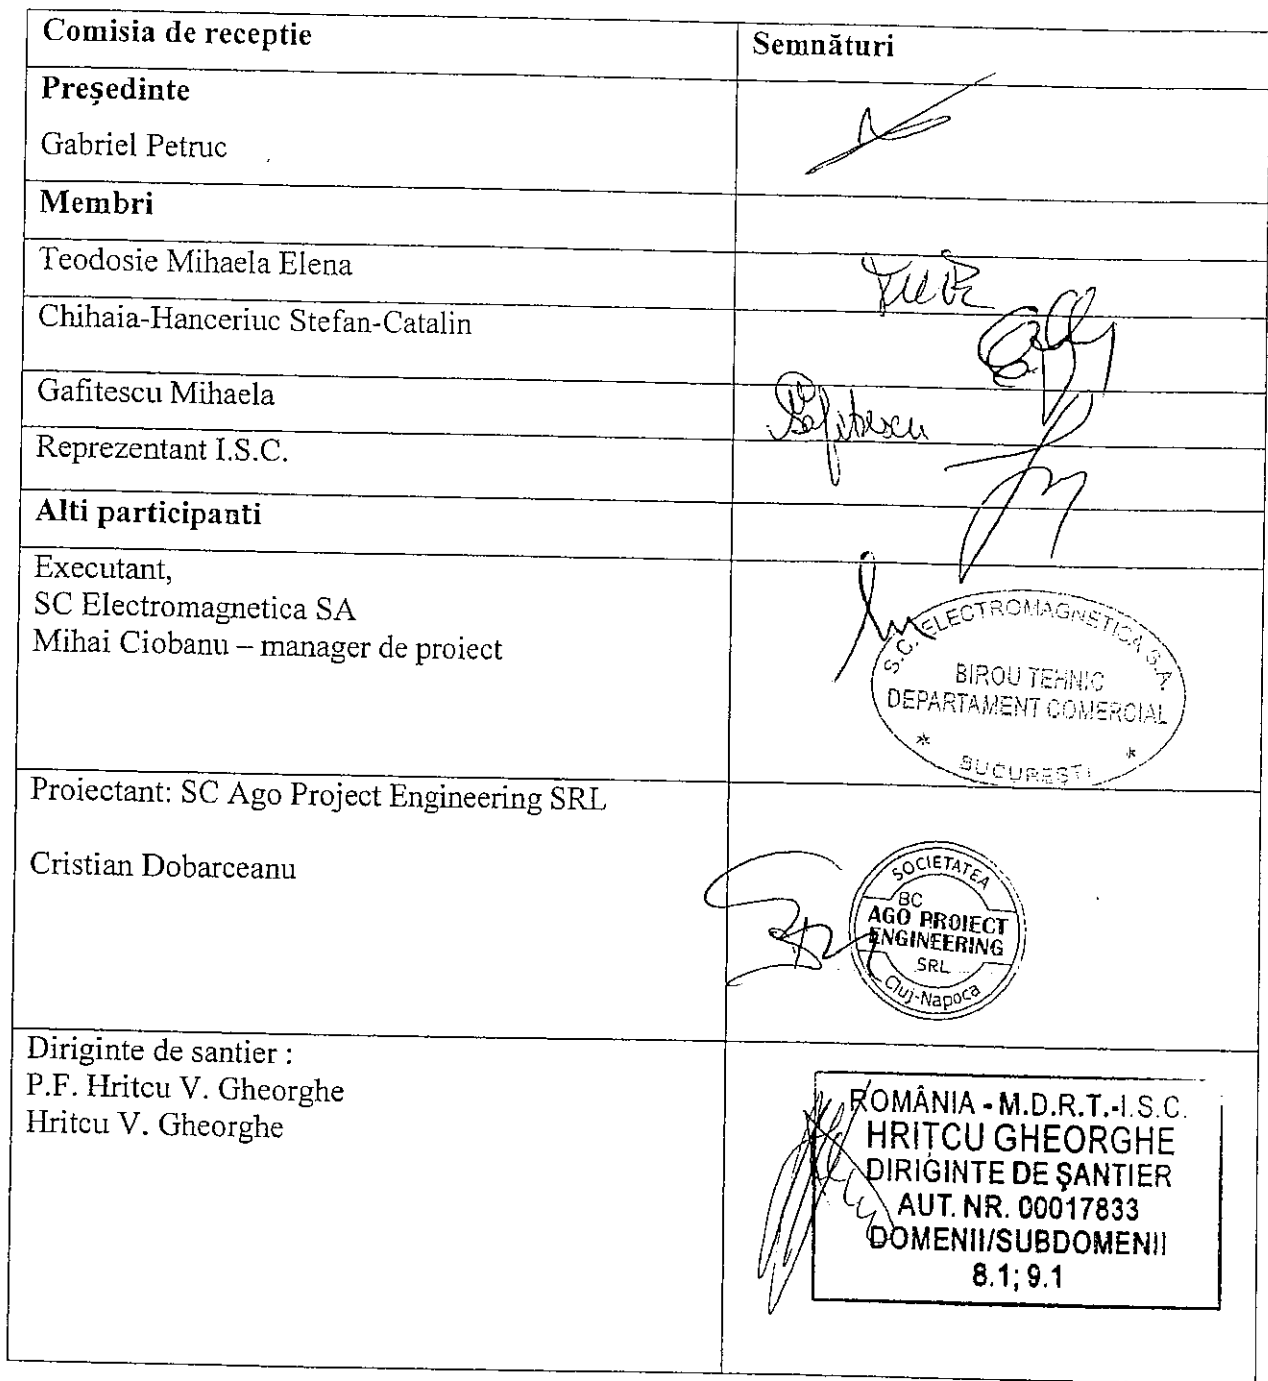 Comisia de receptie
Semnături
Președinte
Gabriel Petruc
Membri
Teodosie Mihaela Elena
Chihaia-Hanceriuc Stefan-Catalin
Gafitescu Mihaela
Gafitescu
Reprezentant I.S.C.
Alti participanti
Executant,
SC Electromagnetica SA
Mihai Ciobanu – manager de proiect
S.C. ELECTROMAGNETICA S.A.
BIROU TEHNIC
DEPARTAMENT COMERCIAL
* BUCUREȘTI *
Proiectant: SC Ago Project Engineering SRL
Cristian Dobarceanu
SOCIETATEA
BC
AGO PROIECT
ENGINEERING
SRL
Cluj-Napoca
Diriginte de santier :
P.F. Hritcu V. Gheorghe
Hritcu V. Gheorghe
ROMÂNIA - M.D.R.T.-I.S.C.
HRIȚCU GHEORGHE
DIRIGINTE DE ȘANTIER
AUT. NR. 00017833
DOMENII/SUBDOMENII
8.1; 9.1